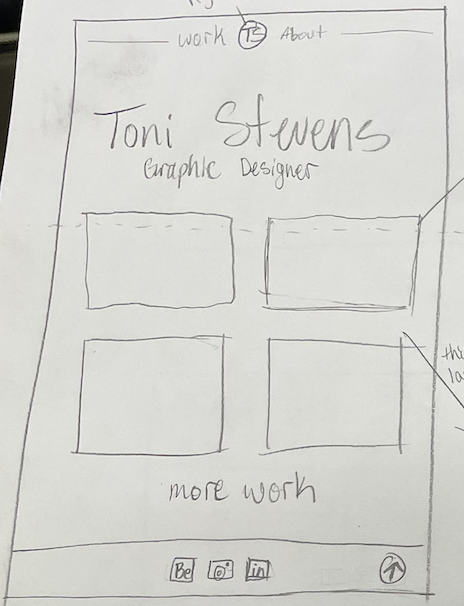 work TS About
Toni Stevens
Graphic Designer
more work
Be in